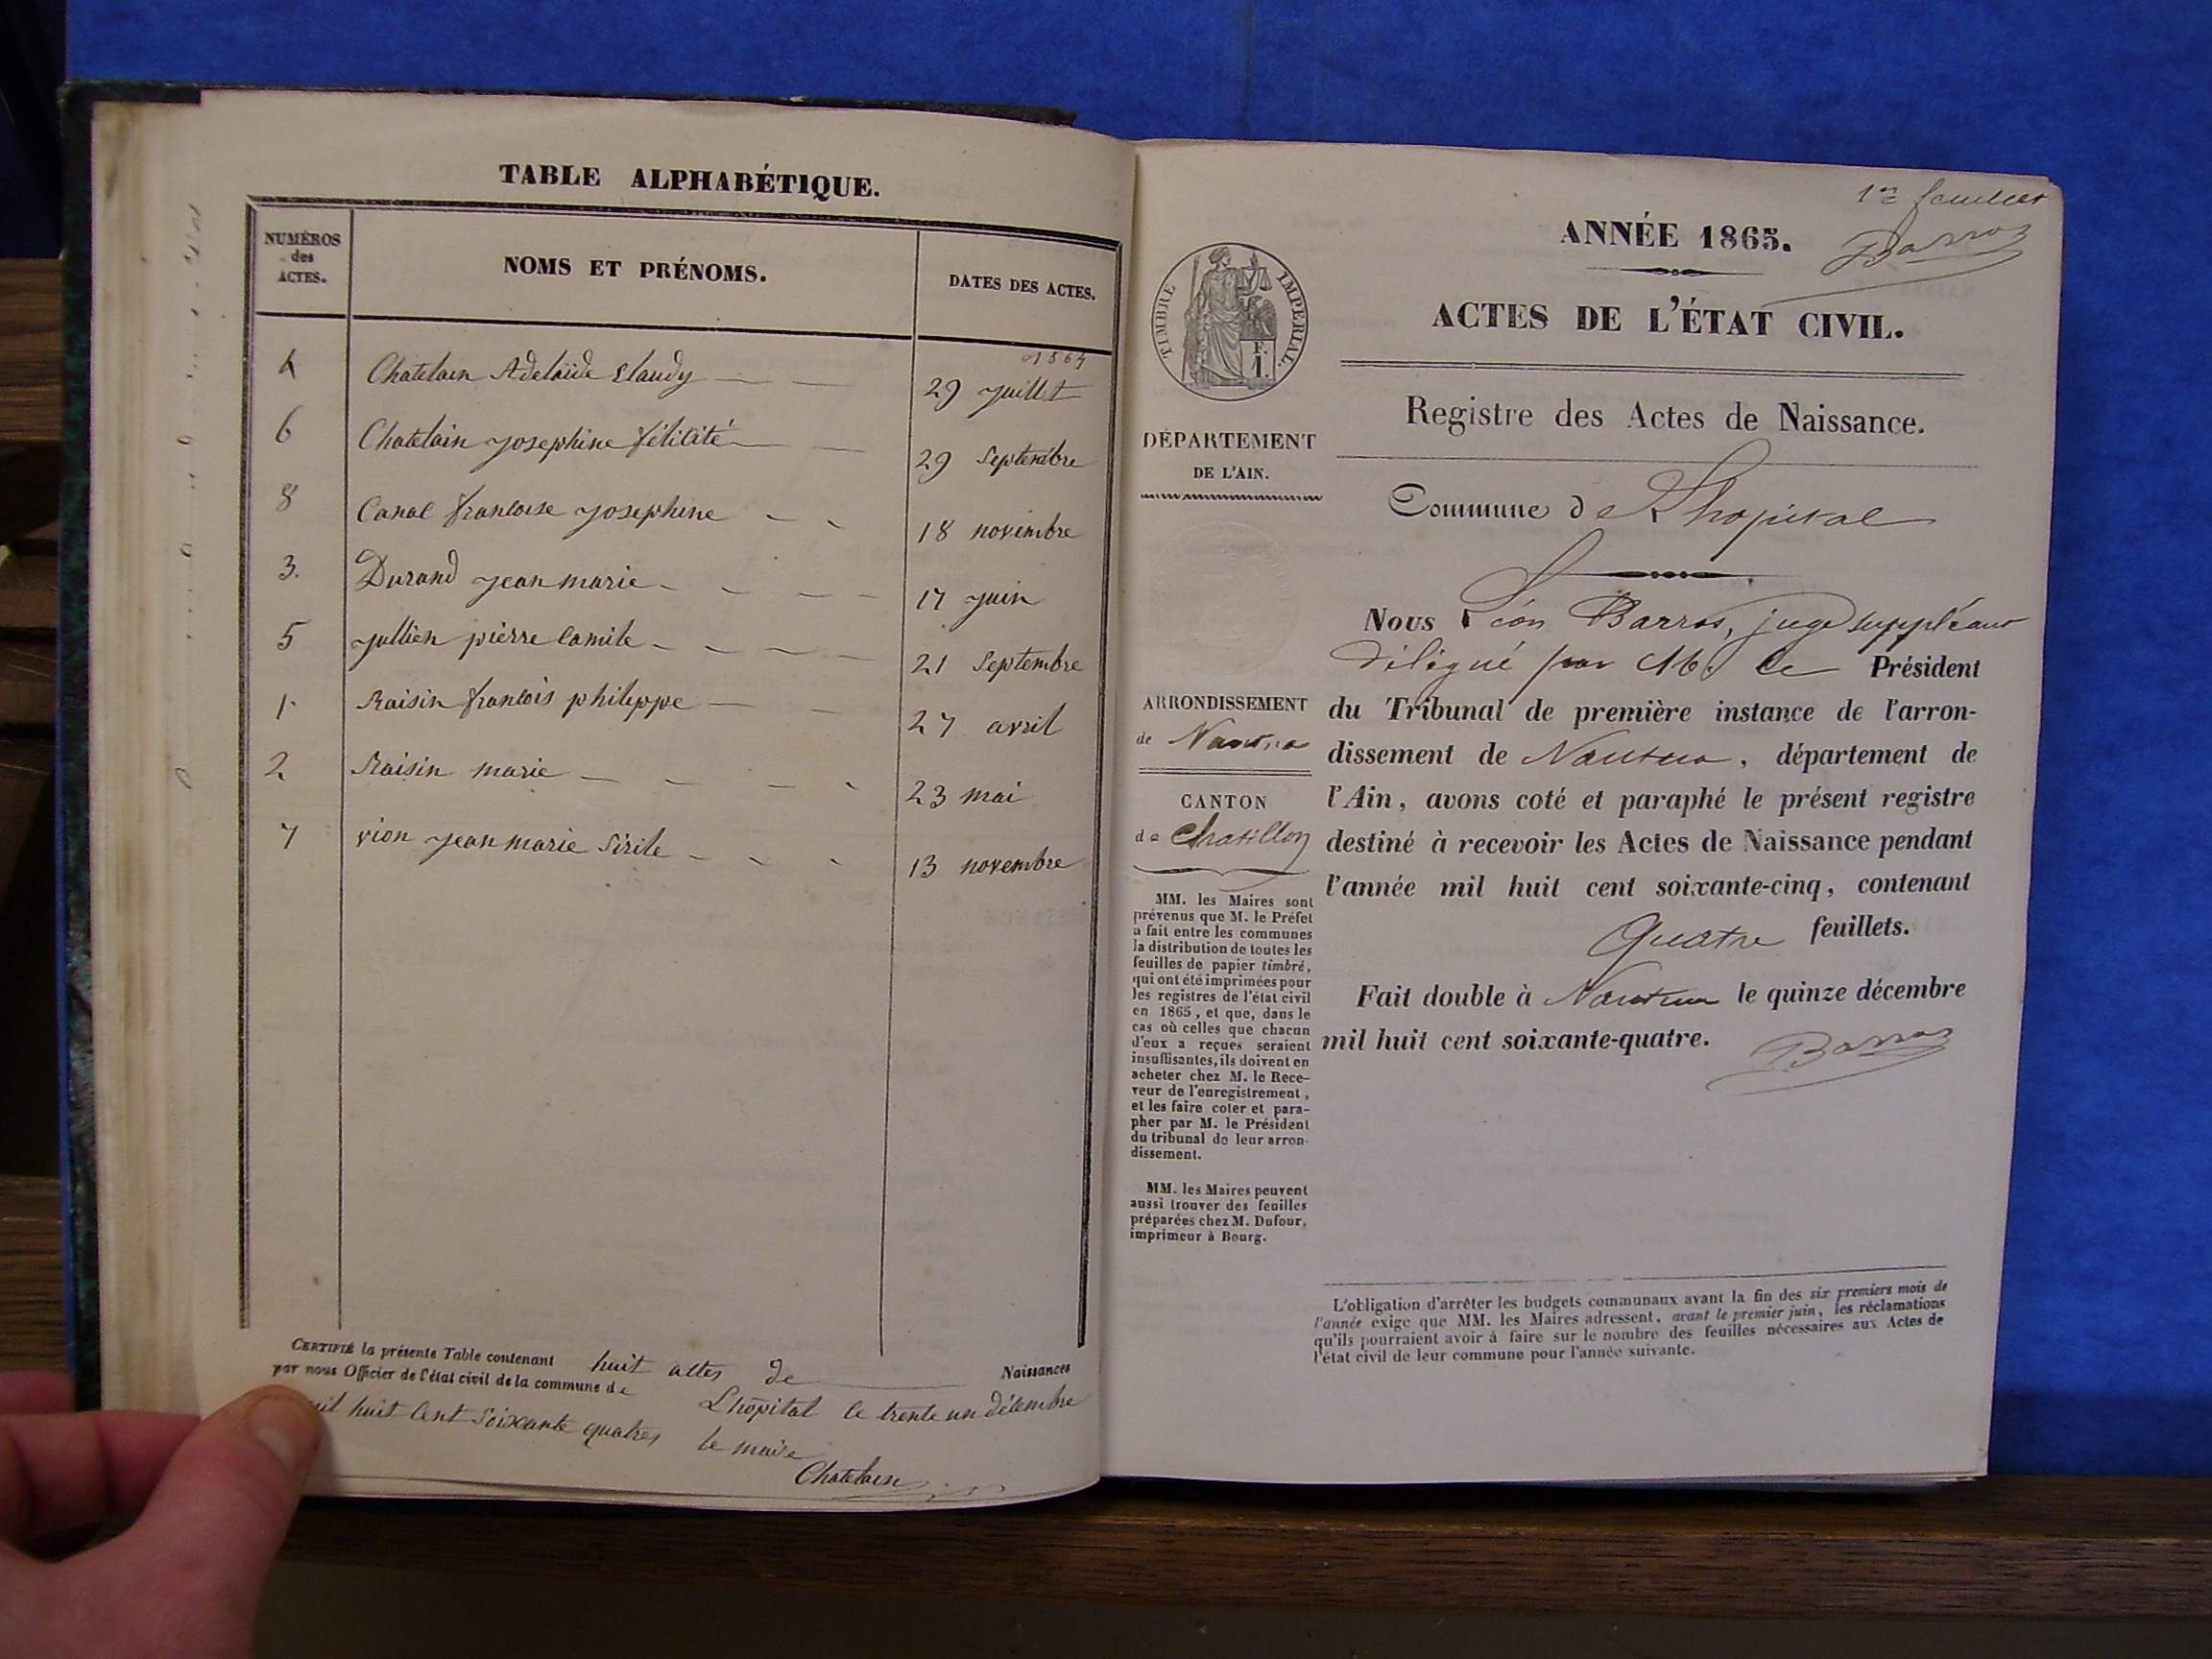 TABLE ALPHABÉTIQUE.
NUMÉROS des ACTES.
NOMS ET PRÉNOMS.
DATES DES ACTES.
1864
4 Chatelain Adelaïde Claudy 29 juillet
6 Chatelain josephine félicité 29 Septembre
8 Canal francoise josephine 18 novembre
3. Durand jean marie 17 juin
5 jullien pierre Camile 21 Septembre
1. Raisin francois philippe 27 avril
2 Raisin marie 23 mai
7 vion jean marie Sirile 13 novembre
CERTIFIÉ la présente Table contenant huit actes de Naissances
par nous Officier de l'état civil de la commune de Lhopital le trente un décembre
mil huit cent soixante quatres le maire
Chatelain
1er feuillet
Barros
ANNÉE 1865.
ACTES DE L'ÉTAT CIVIL.
Registre des Actes de Naissance.
Commune de Lhopital
TIMBRE IMPÉRIAL.
F.
1.
DÉPARTEMENT
DE L'AIN.
ARRONDISSEMENT
de Nantua
CANTON
de Chatillon
MM. les Maires sont
prévenus que M. le Préfet
a fait entre les communes
la distribution de toutes les
feuilles de papier timbré,
qui ont été imprimées pour
les registres de l'état civil
en 1865, et que, dans le
cas où celles que chacun
d'eux a reçues seraient
insuffisantes, ils doivent en
acheter chez M. le Rece-
veur de l'enregistrement,
et les faire coter et para-
pher par M. le Président
du tribunal de leur arron-
dissement.
MM. les Maires peuvent
aussi trouver des feuilles
préparées chez M. Dufour,
imprimeur à Bourg.
Nous Léon Barros, juge suppléant
délégué par M. le Président
du Tribunal de première instance de l'arron-
dissement de Nantua, département de
l'Ain, avons coté et paraphé le présent registre
destiné à recevoir les Actes de Naissance pendant
l'année mil huit cent soixante-cinq, contenant
Quatre feuillets.
Fait double à Nantua le quinze décembre
mil huit cent soixante-quatre.
Barros
L'obligation d'arrêter les budgets communaux avant la fin des six premiers mois de
l'année exige que MM. les Maires adressent, avant le premier juin, les réclamations
qu'ils pourraient avoir à faire sur le nombre des feuilles nécessaires aux Actes de
l'état civil de leur commune pour l'année suivante.